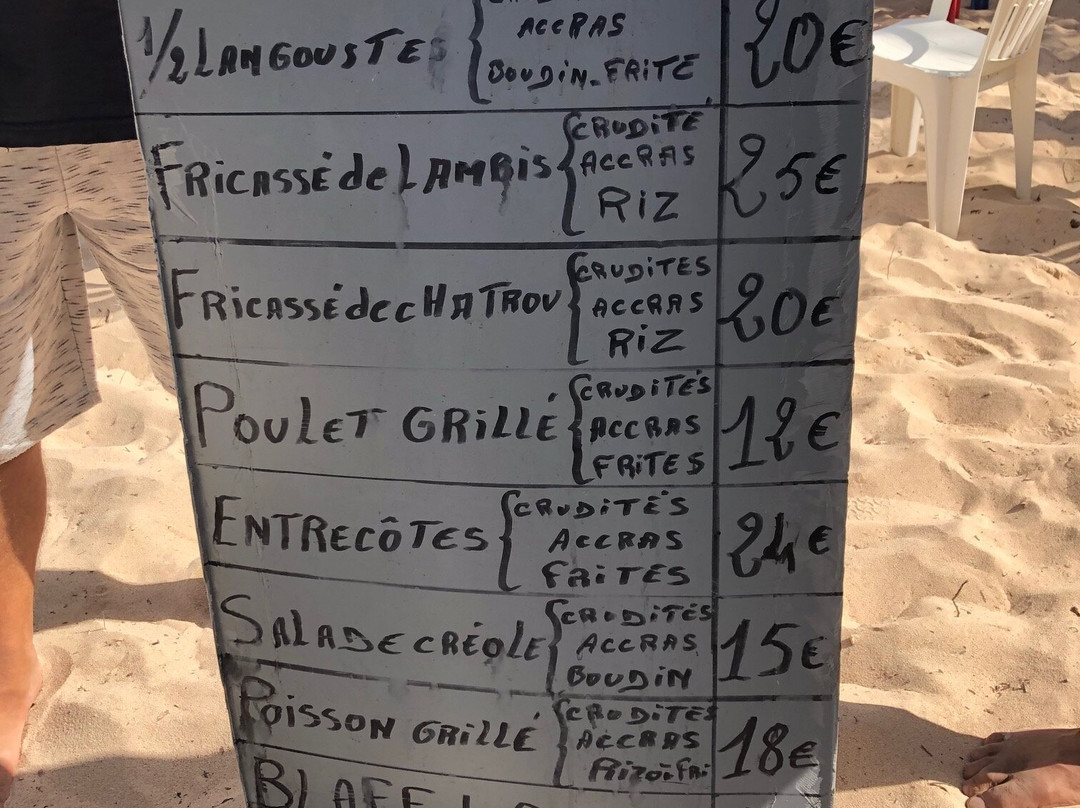 1/2 LANGOUSTES
ACCRAS
BOUDIN-FRITE
20€
FRICASSÉ de LAMBIS
CRUDITÉ
ACCRAS
RIZ
25€
FRICASSÉ de CHATROU
CRUDITES
ACCRAS
RIZ
20€
POULET GRILLÉ
CRUDITÉS
ACCRAS
FRITES
12€
ENTRECÔTES
CRUDITÉS
ACCRAS
FRITES
24€
SALADE CRÉOLE
CRUDITÉS
ACCRAS
BOUDIN
15€
POISSON GRILLÉ
CRUDITÉS
ACCRAS
18€
BLAFF